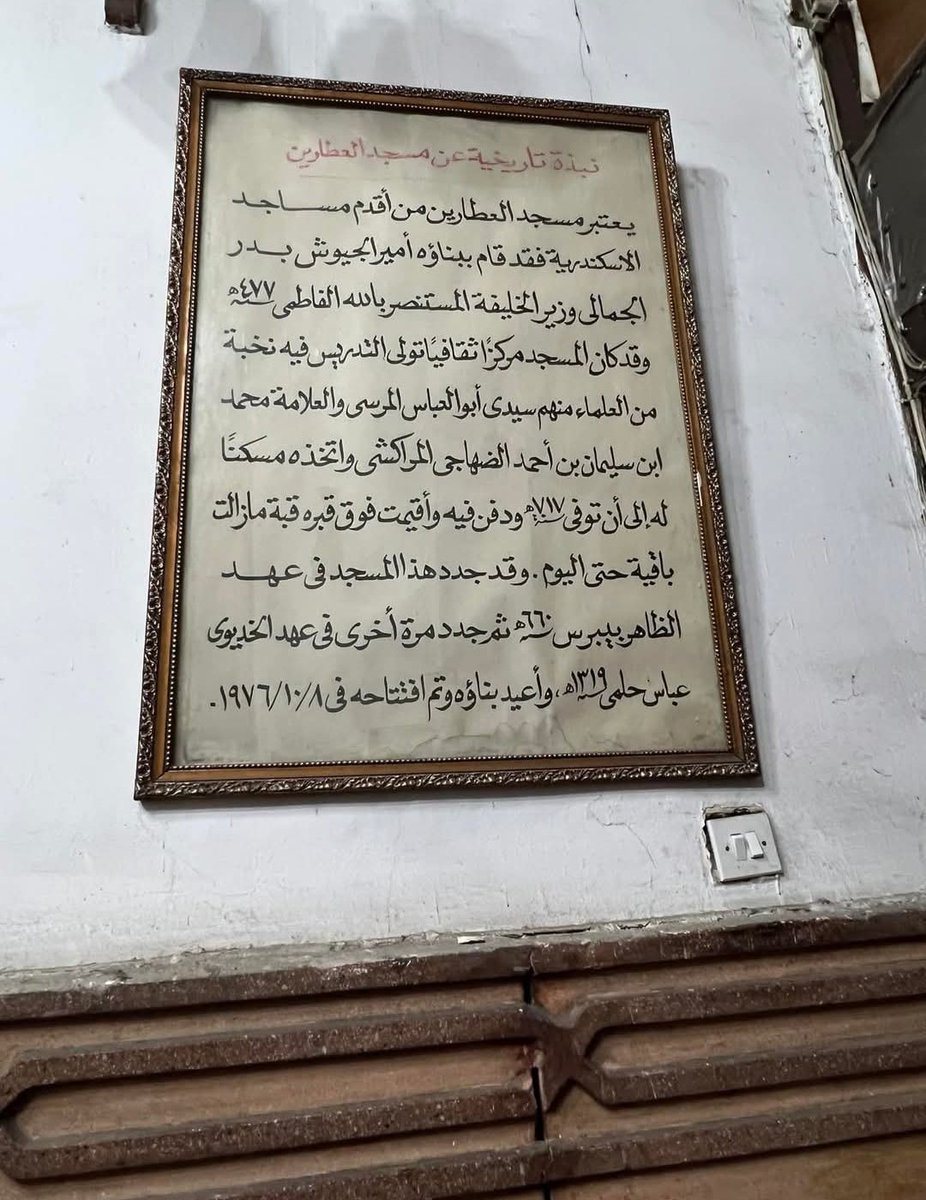 نبذة تاريخية عن مسجد العطارين
يعتبر مسجد العطارين من أقدم مساجد
الاسكندرية فقد قام ببناؤه أمير الجيوش بدر
الجمالى وزير الخليفة المستنصر بالله الفاطمى سنة ٤٧٧ھ
وقد كان المسجد مركزًا ثقافيًا تولى التدريس فيه نخبة
من العلماء منهم سيدى أبو العباس المرسى والعلامة محمد
ابن سليمان بن أحمد الضهاجى المراكشى واتخذه مسكنًا
له إلى أن توفى سنة ٧١٧ھ ودفن فيه وأقيمت فوق قبره قبة مازالت
باقية حتى اليوم . وقد جدد هذا المسجد فى عهد
الظاهر بيبرس سنة ٦٦٠ھ ثم جدد مرة أخرى فى عهد الخديوى
عباس حلمى سنة ١٣١٩ھ، وأعيد بناؤه وتم افتتاحه فى ١٩٧٦/١٠/٨ .